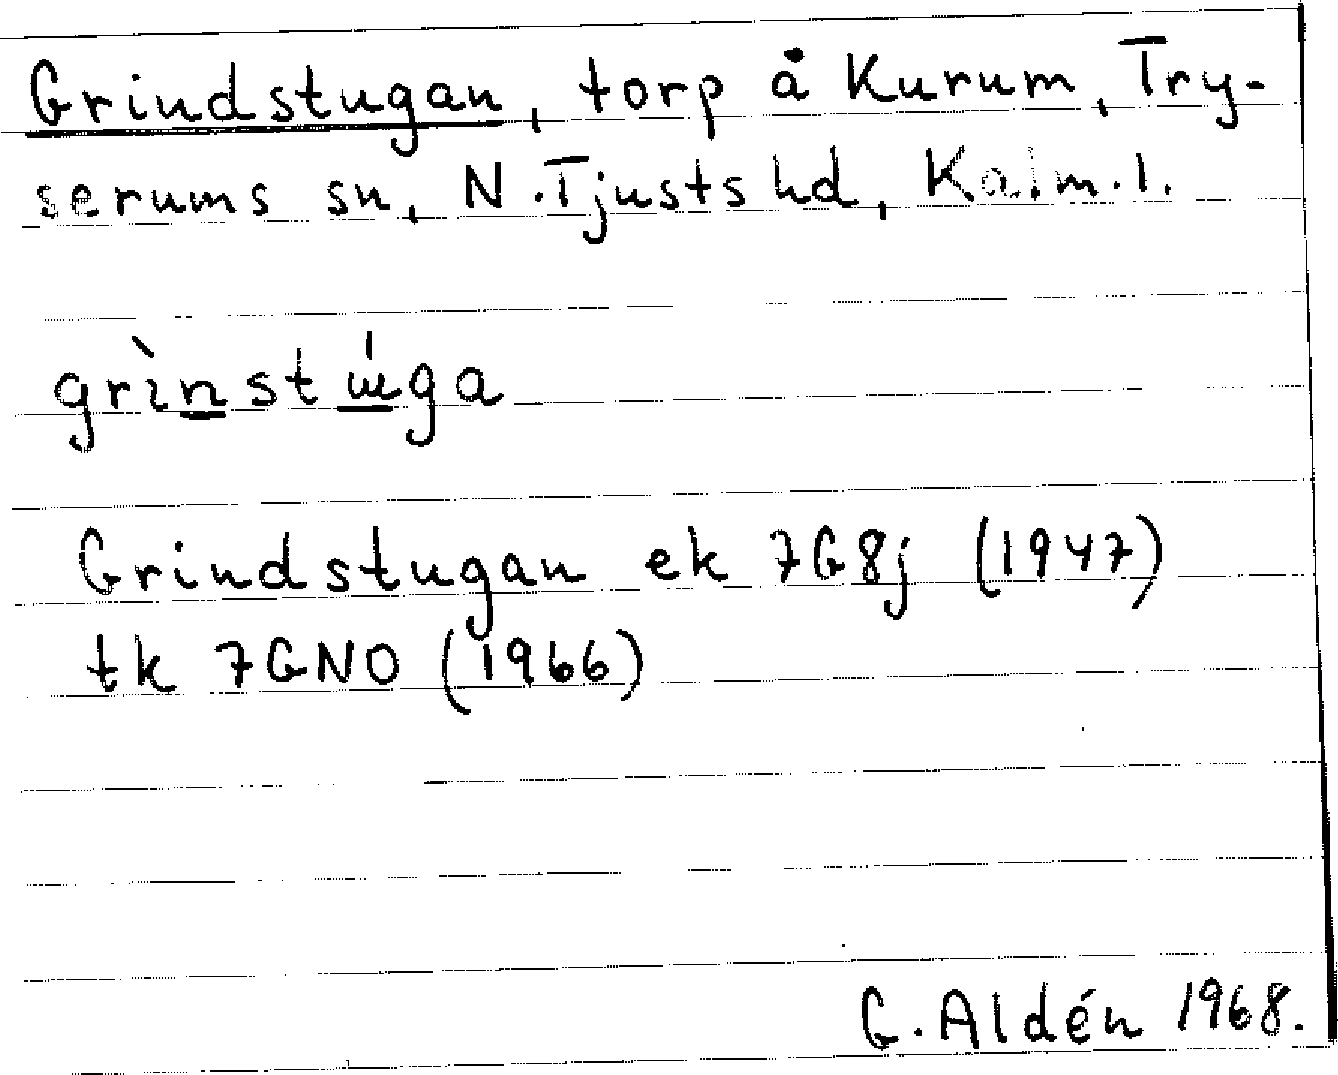 Grindstugan, torp å Kurum, Try-
serums sn, N. Tjusts hd, Kalm. l.
grìnstɯ́ga
Grindstugan ek 7G8j (1947)
tk 7GNO (1966)
G. Aldén 1968.